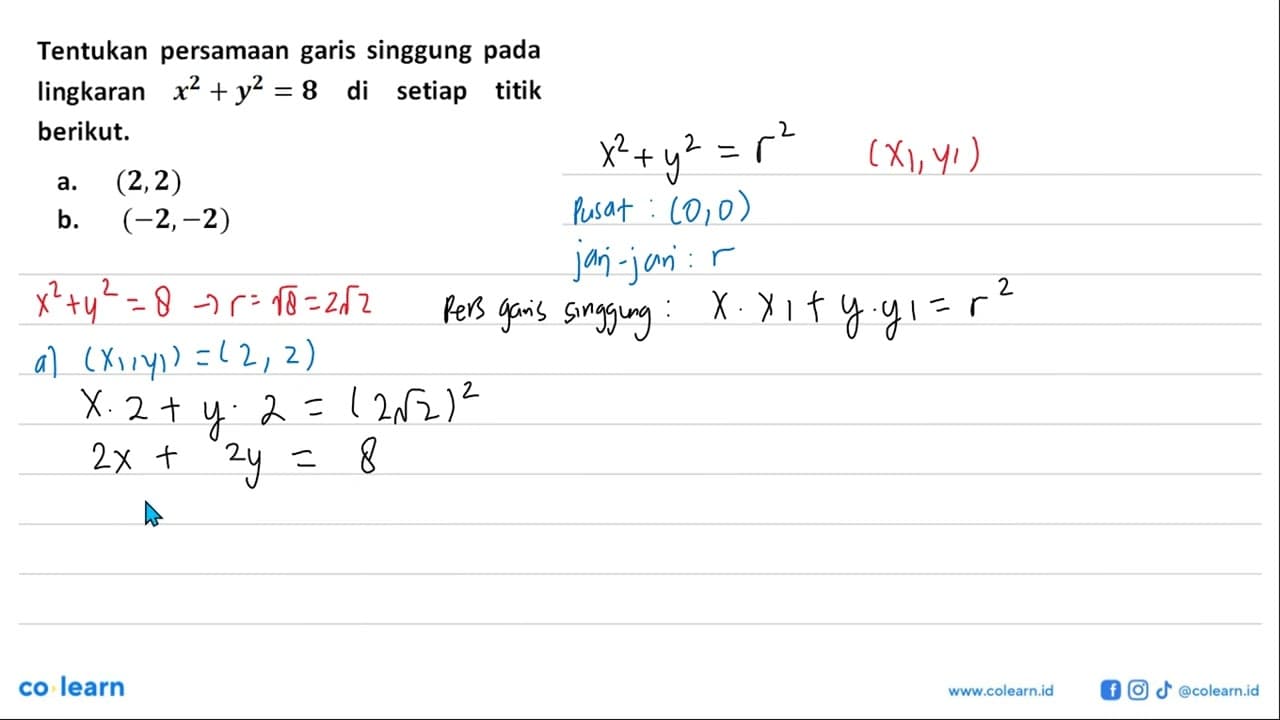 Tentukan persamaan garis singgung pada
lingkaran x² + y² = 8 di setiap titik
berikut.
a. (2, 2)
b. (−2, −2)
x² + y² = r² (x₁, y₁)
Pusat : (0,0)
jari-jari : r
x² + y² = 8 → r = √8 = 2√2
Pers garis singgung : x · x₁ + y · y₁ = r²
a) (x₁, y₁) = (2, 2)
x · 2 + y · 2 = (2√2)²
2x + 2y = 8
co learn
www.colearn.id
@colearn.id